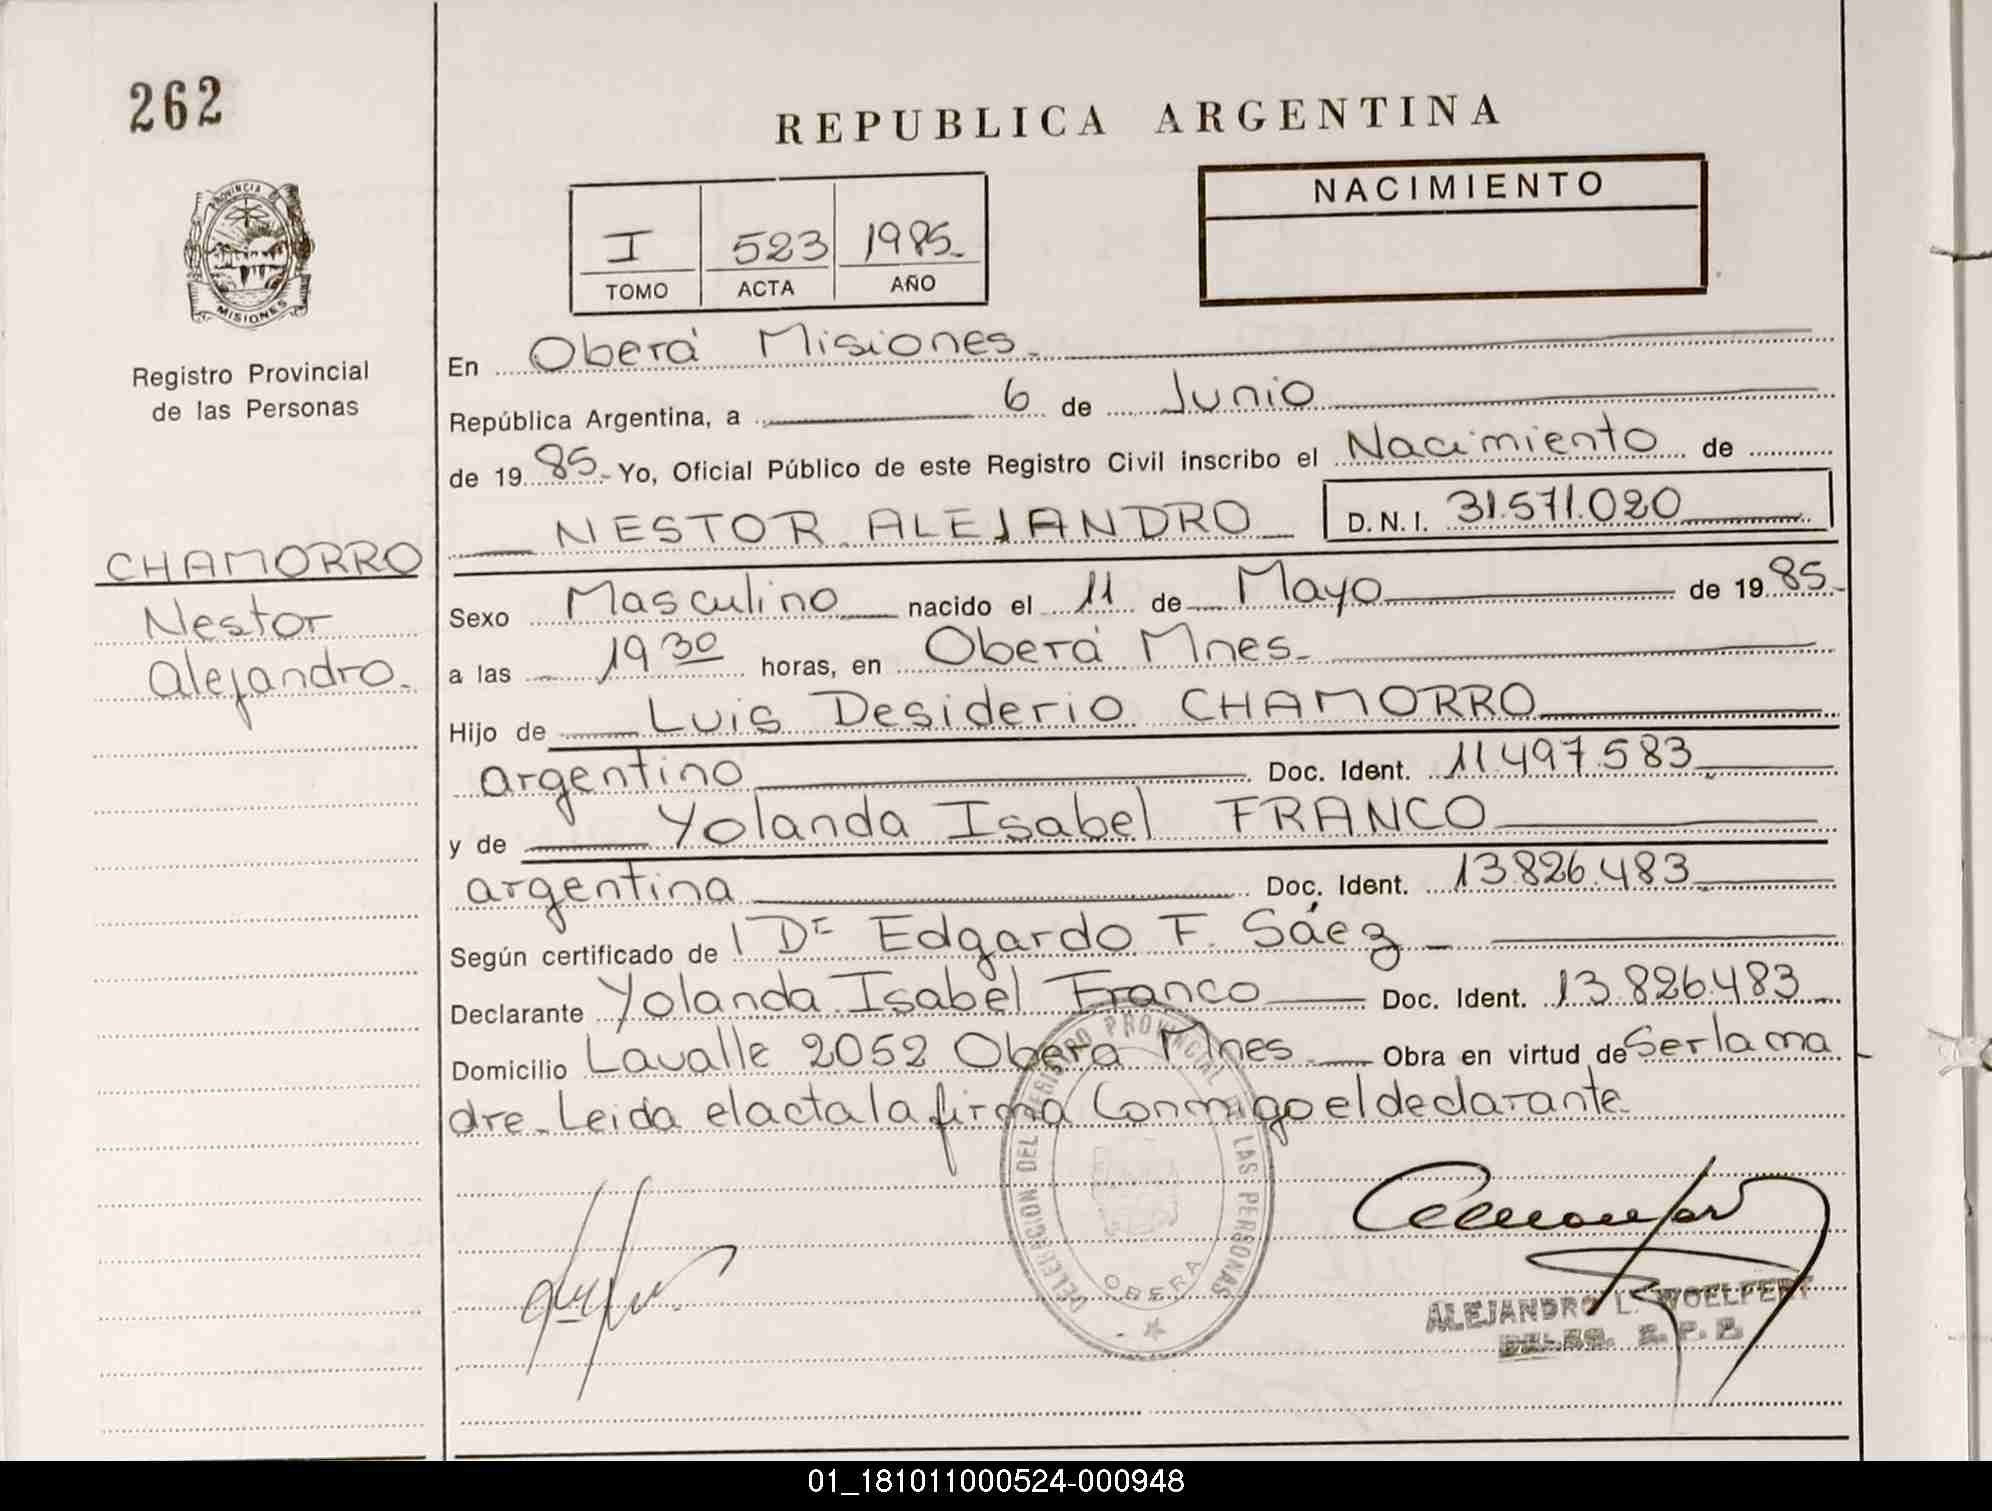 262
REPUBLICA ARGENTINA
NACIMIENTO
I 523 1985.
TOMO ACTA AÑO
PROVINCIA DE
MISIONES
Registro Provincial
de las Personas
CHAMORRO
Nestor
Alejandro.
En Oberá Misiones.
República Argentina, a 6 de Junio
de 19 85. Yo, Oficial Público de este Registro Civil inscribo el Nacimiento de
NESTOR ALEJANDRO D.N.I. 31.571.020
Sexo Masculino nacido el 11 de Mayo de 19 85.
a las 19 30 horas, en Oberá Mnes.
Hijo de Luis Desiderio CHAMORRO
argentino Doc. Ident. 11.497.583
y de Yolanda Isabel FRANCO
argentina Doc. Ident. 13.826.483
Según certificado de Dr Edgardo F. Sáez
Declarante Yolanda Isabel Franco Doc. Ident. 13.826.483
Domicilio Lavalle 2052 Oberá Mnes. Obra en virtud de Ser la ma
dre. Leida el acta la firma Conmigo el declarante
DELEGACION DEL REGISTRO PROVINCIAL DE LAS PERSONAS
OBERA
ALEJANDRO L. WOELFERT
01_181011000524-000948